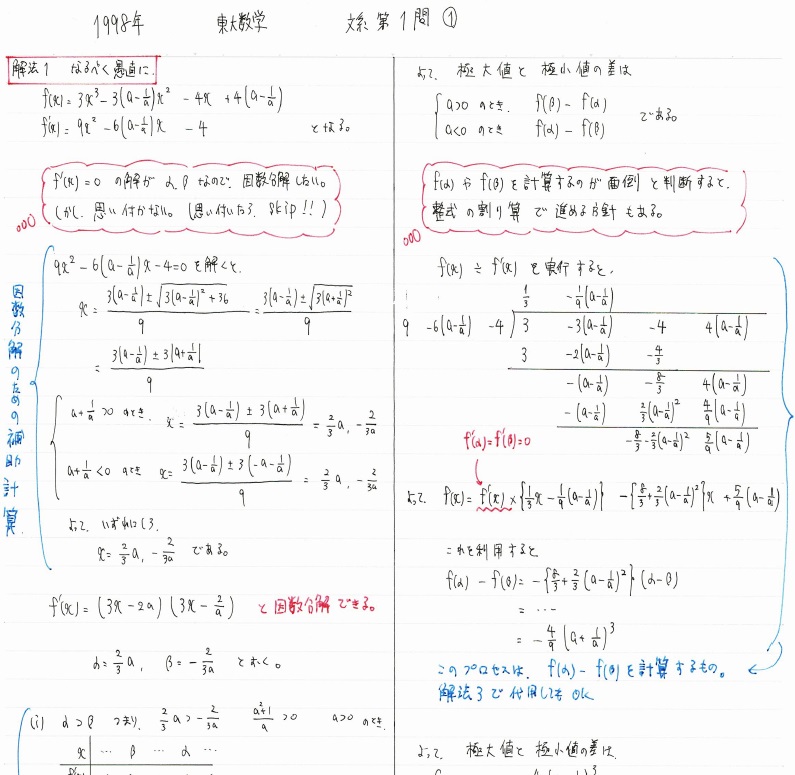 1998年 東大数学 文系第1問 ①
解法1 なるべく愚直に.
f(x) = 3x³ - 3(a - 1/a)x² - 4x + 4(a - 1/a)
f'(x) = 9x² - 6(a - 1/a)x - 4 となる。
f'(x) = 0 の解が α, β なので、因数分解したい。
しかし、思い付かない。(思い付いたら、skip!!)
因数分解のための補助計算.
9x² - 6(a - 1/a)x - 4 = 0 を解くと、
x = 3(a - 1/a) ± √3(a - 1/a)² + 36 / 9 = 3(a - 1/a) ± √3(a + 1/a)² / 9
= 3(a - 1/a) ± 3|a + 1/a| / 9
a + 1/a > 0 のとき. x = 3(a - 1/a) ± 3(a + 1/a) / 9 = 2/3 a, - 2/3a
a + 1/a < 0 のとき x = 3(a - 1/a) ± 3(-a - 1/a) / 9 = 2/3 a, - 2/3a
よって、いずれにしろ、
x = 2/3 a, - 2/3a である。
f'(x) = (3x - 2a)(3x - 2/a) と因数分解できる。
α = 2/3 a, β = - 2/3a とおく。
(i) α > β つまり. 2/3 a > - 2/3a a²+1/a > 0 a > 0 のとき.
x ⋯ β ⋯ α ⋯
よって、極大値と極小値の差は
a > 0 のとき. f(β) - f(α)
a < 0 のとき f(α) - f(β)
である。
f(α) や f(β) を計算するのが面倒と判断すると、
整式の割り算で進める方針もある。
f(x) ÷ f'(x) を実行すると、
1/3 - 1/9(a - 1/a)
9 -6(a - 1/a) -4 ) 3 -3(a - 1/a) -4 4(a - 1/a)
3 -2(a - 1/a) - 4/3
-(a - 1/a) - 8/3 4(a - 1/a)
-(a - 1/a) 2/3(a - 1/a)² 4/9(a - 1/a)
- 8/3 - 2/3(a - 1/a)² 5/9(a - 1/a)
f'(α) = f'(β) = 0
よって、f(x) = f'(x) × {1/3 x - 1/9(a - 1/a)} - {8/3 + 2/3(a - 1/a)²}x + 5/9(a - 1/a)
これを利用すると
f(α) - f(β) = - {8/3 + 2/3(a - 1/a)²}・(α - β)
= ⋯
= - 4/9 (a + 1/a)³
このプロセスは、f(α) - f(β) を計算するもの。
解法3で代用してもOK
よって、極大値と極小値の差は.